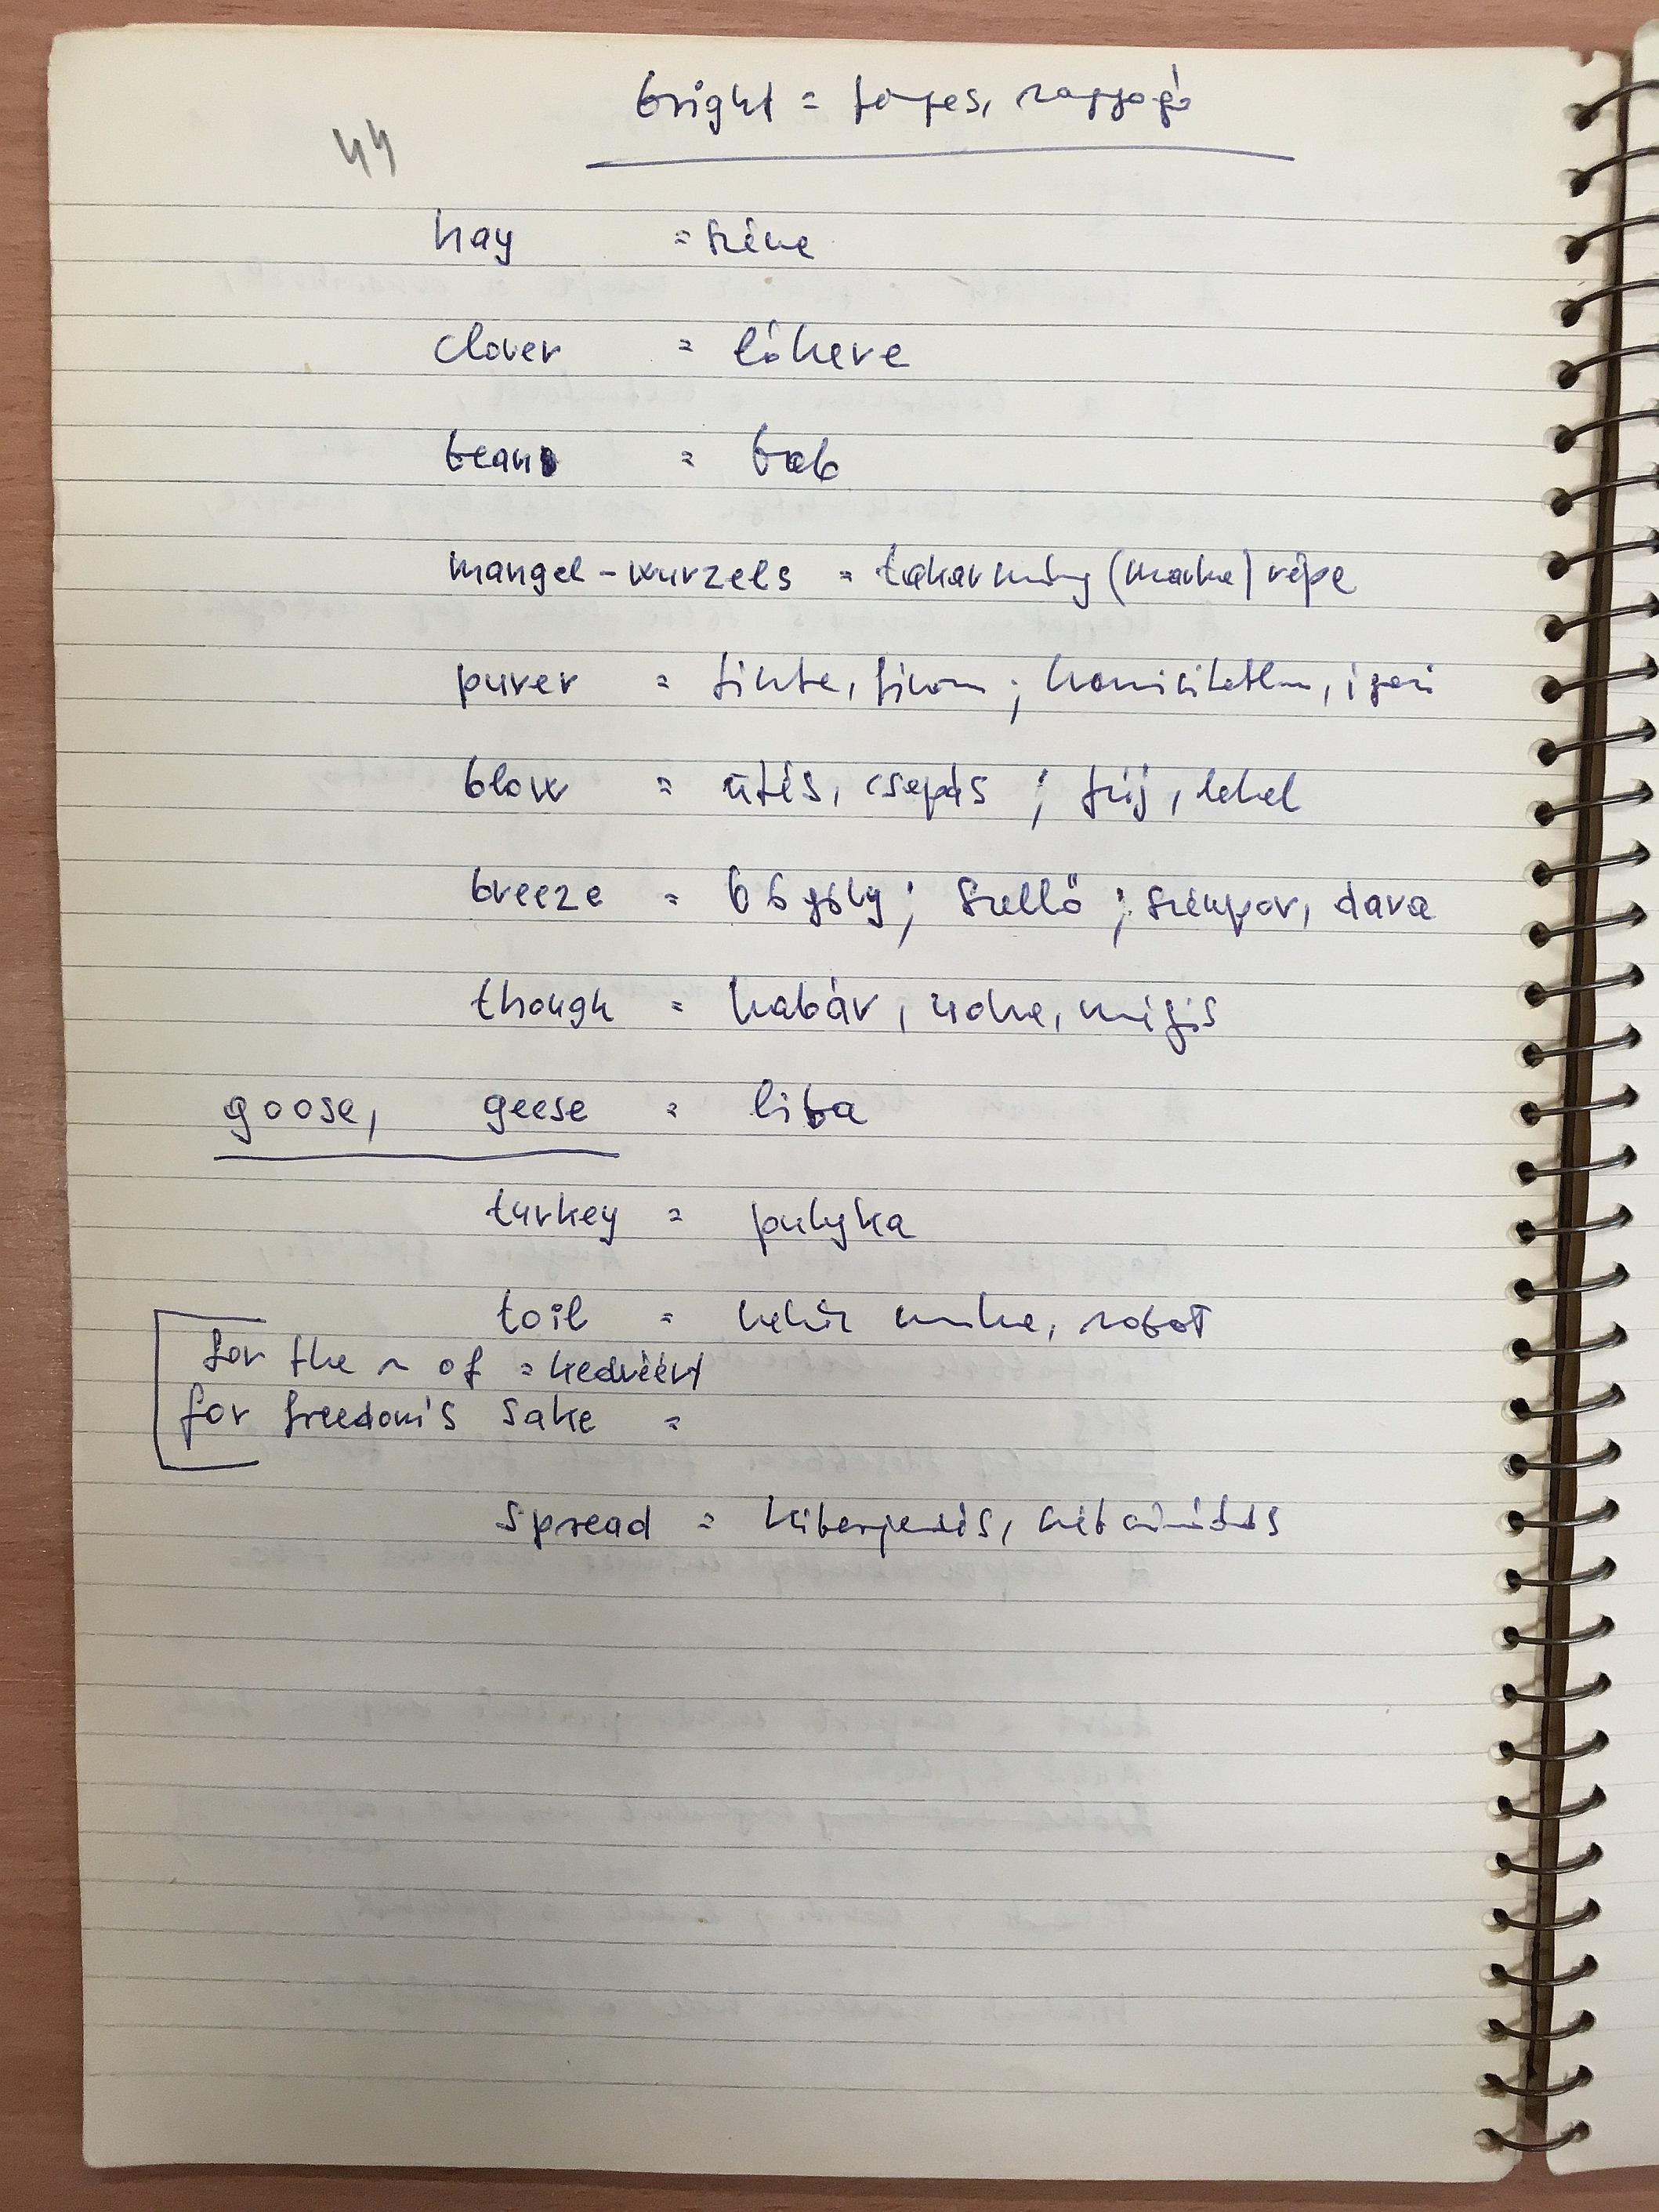 bright = fényes, ragyogó
44
hay = széna
clover = lóhere
beans = bab
mangel-wurzels = takarmány (marha) répa
purer = tiszta, finom; hamisítatlan, igazi
blow = ütés, csapás ; fúj, lehel
breeze = bögöly; szellő ; szénpor, dara
though = habár, noha, mégis
goose, geese = liba
turkey = pulyka
toil = nehéz munka, robot
for the ~ of = kedvéért
for freedom's sake =
spread = kiterjedés,